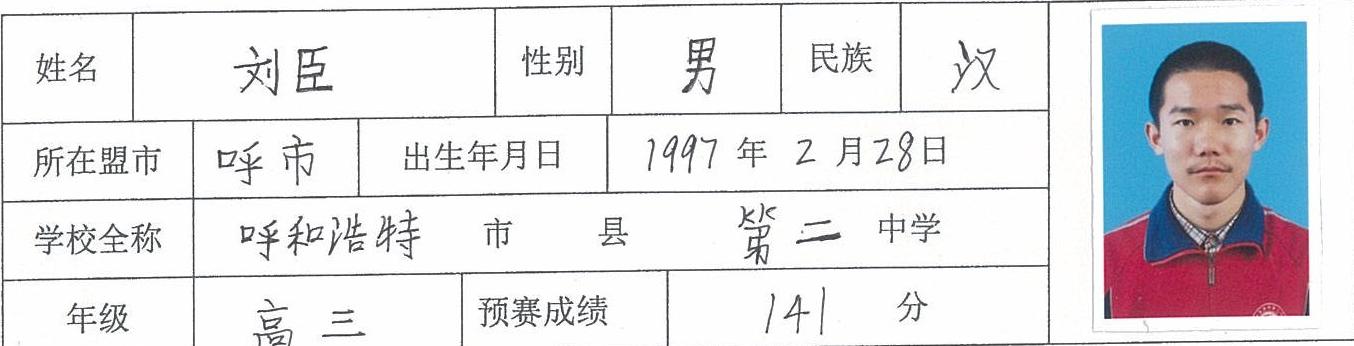 姓名 刘臣 性别 男 民族 汉
所在盟市 呼市 出生年月日 1997年2月28日
学校全称 呼和浩特 市 县 第二 中学
年级 高三 预赛成绩 141 分